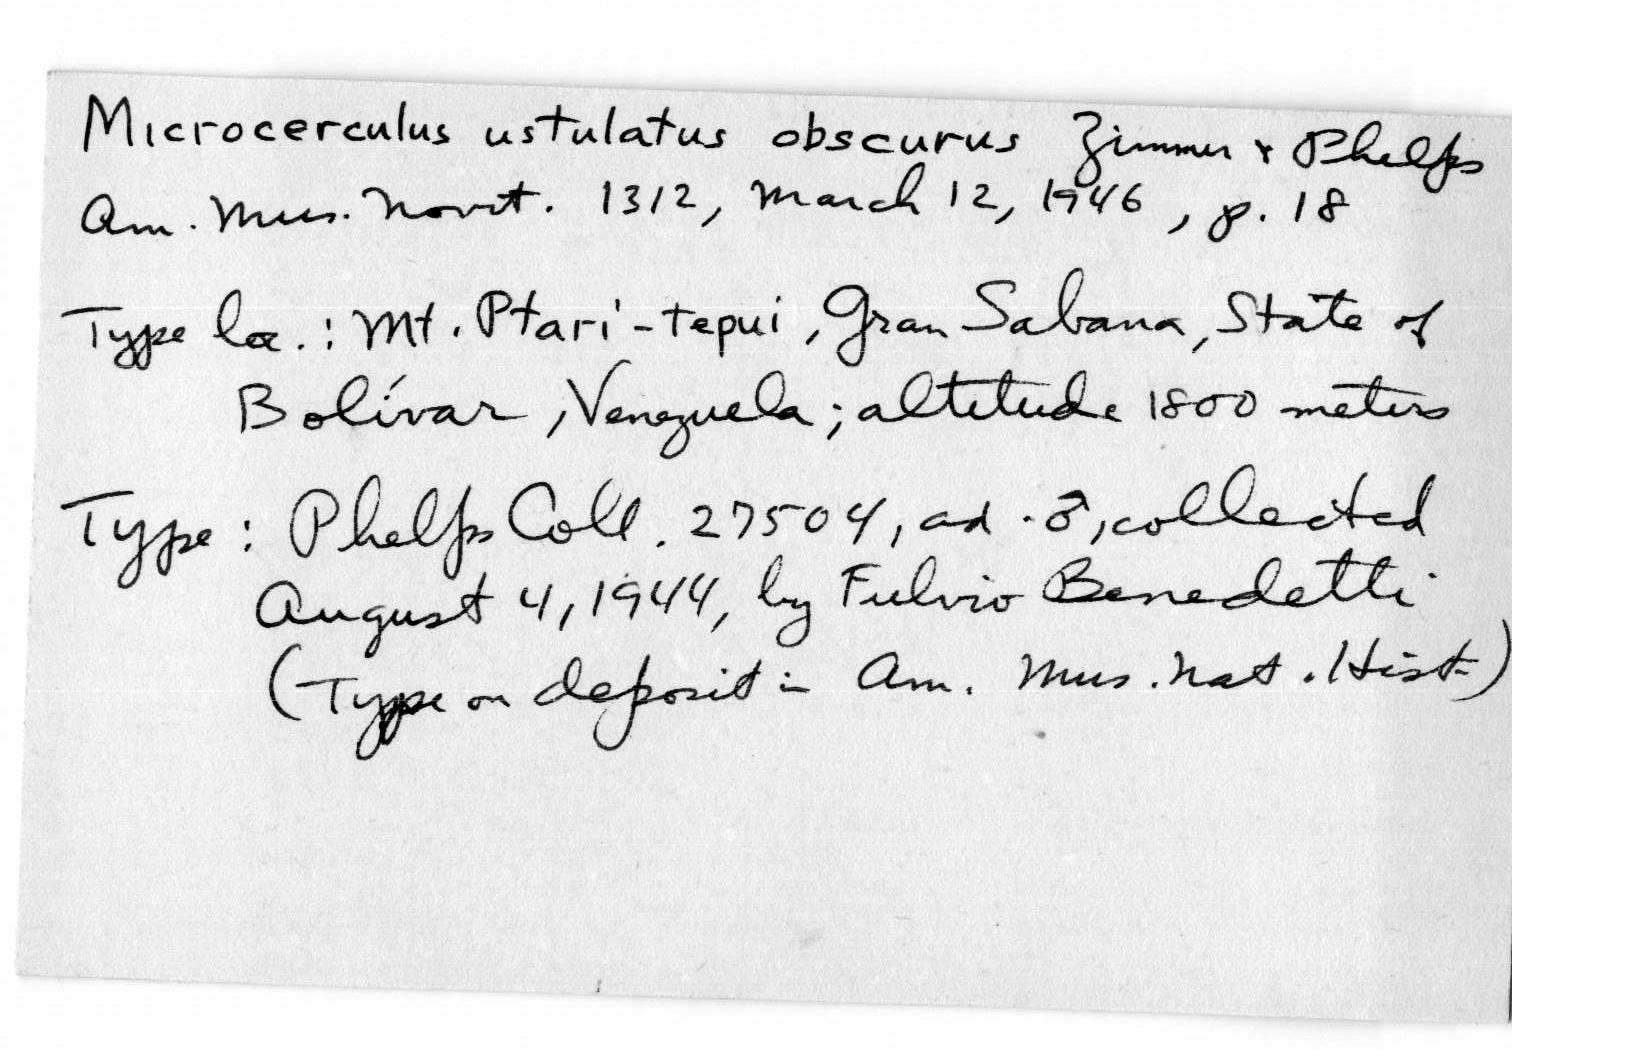 Microcerculus ustulatus obscurus Zimmer & Phelps
Am. Mus. Novit. 1312, March 12, 1946, p. 18
Type loc.: Mt. Ptari-tepui, Gran Sabana, State of
Bolívar, Venezuela; altitude 1800 meters
Type: Phelps Coll. 27504, ad. ♂, collected
August 4, 1944, by Fulvio Benedetti
(Type on deposit in Am. Mus. Nat. Hist.)